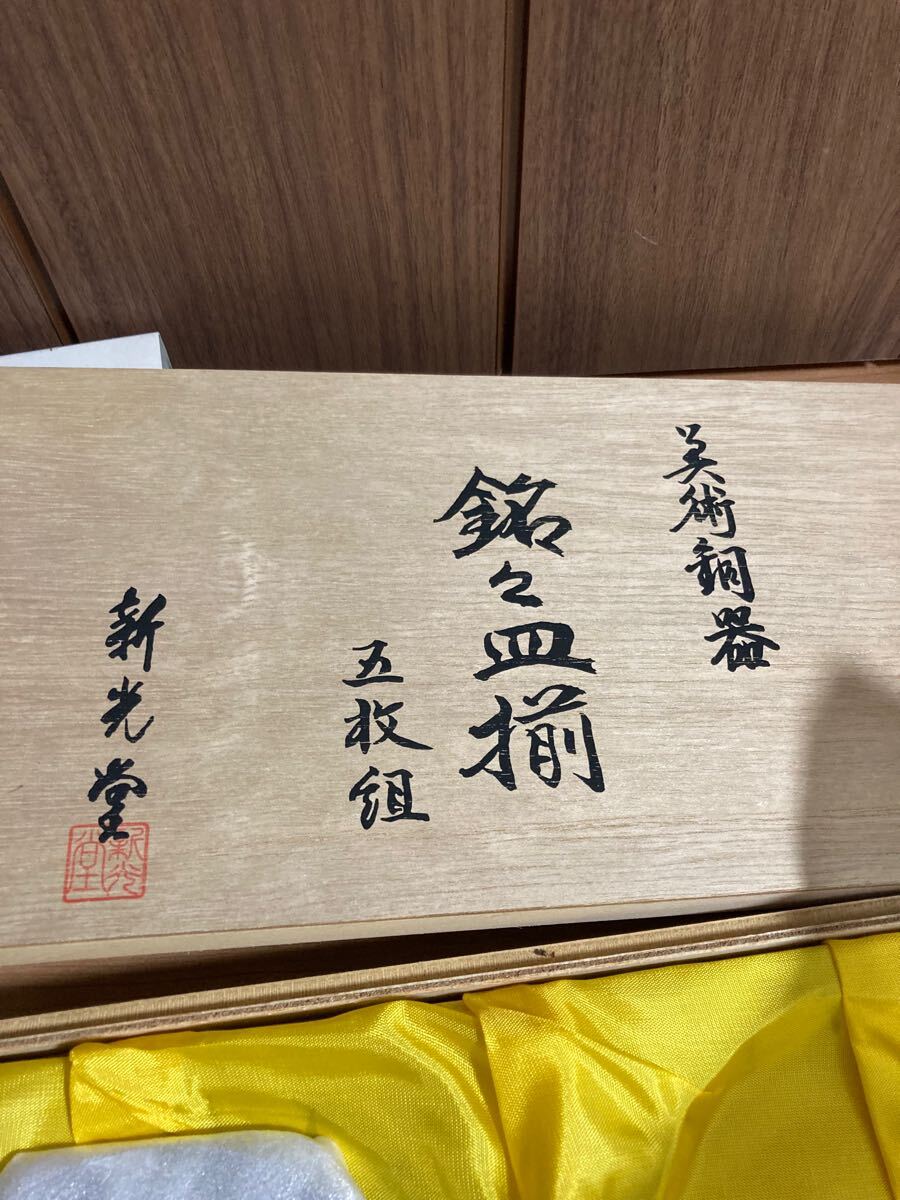 美術銅器
銘々皿揃
五枚組
新光堂
新光堂